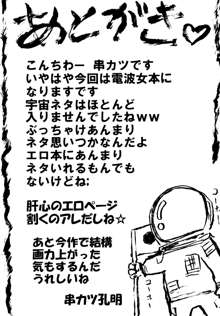 あとがき♡
こんちわー 串カツです
いやはや今回は電波女本に
なりますです
宇宙ネタはほとんど
入りませんでしたねww
ぶっちゃけあんまり
ネタ思いつかなんだよ
エロ本にあんまり
ネタいれるもんでも
ないけどね;
肝心のエロページ
割くのアレだしね☆
あと今作で結構
画力上がった
気もするんだ
うれしいね
串カツ孔明
コーホー
コーホー